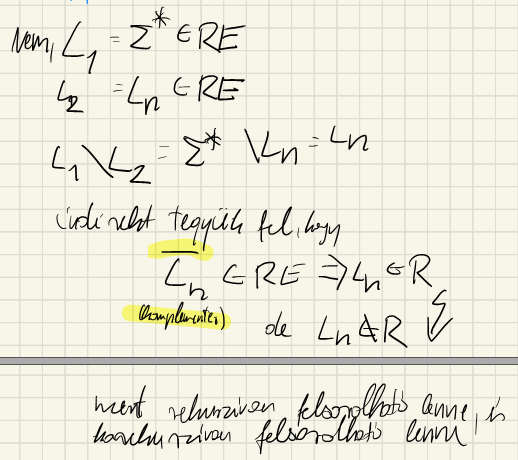 Nem, L₁ = Σ* ∈ RE
L₂ = Lₙ ∈ RE
L₁ \ L₂ = Σ* \ Lₙ = Lₙ
indirekt tegyük fel, hogy
L̅ₙ ∈ RE ⇒ Lₙ ∈ R
(komplementer)
de Lₙ ∉ R ↯
mert rekurzívan felsorolható lenne, és
korekurzívan felsorolható lenne